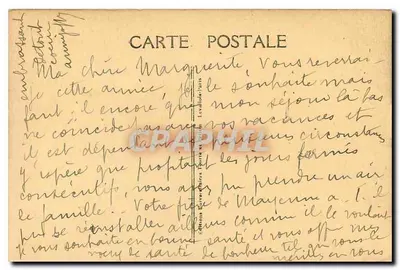 CARTE POSTALE
embrassant
de tout
coeur
Ma chère Marguerite, Vous reverrai-
je cette année, je le souhaite mais
faut-il encore que mon séjour là bas
ne coïncide avec vos vacances et
il est dépendant de plusieurs circonstances
J'espère que profitant des jours fermés
consécutifs, vous avez pu prendre un air
de famille. Votre frère de Mayenne a-t-il
pu se réinstaller ailleurs comme il le voulait
Je vous souhaite en bonne santé et vous offre mes
voeux de santé de bonheur tel que vous le
méritez, en vous
CPAPHIL